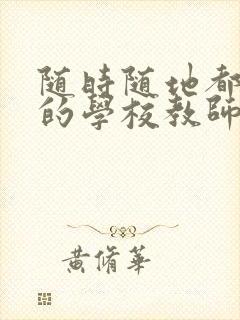 随時随地都
的學校教師
黃脩華